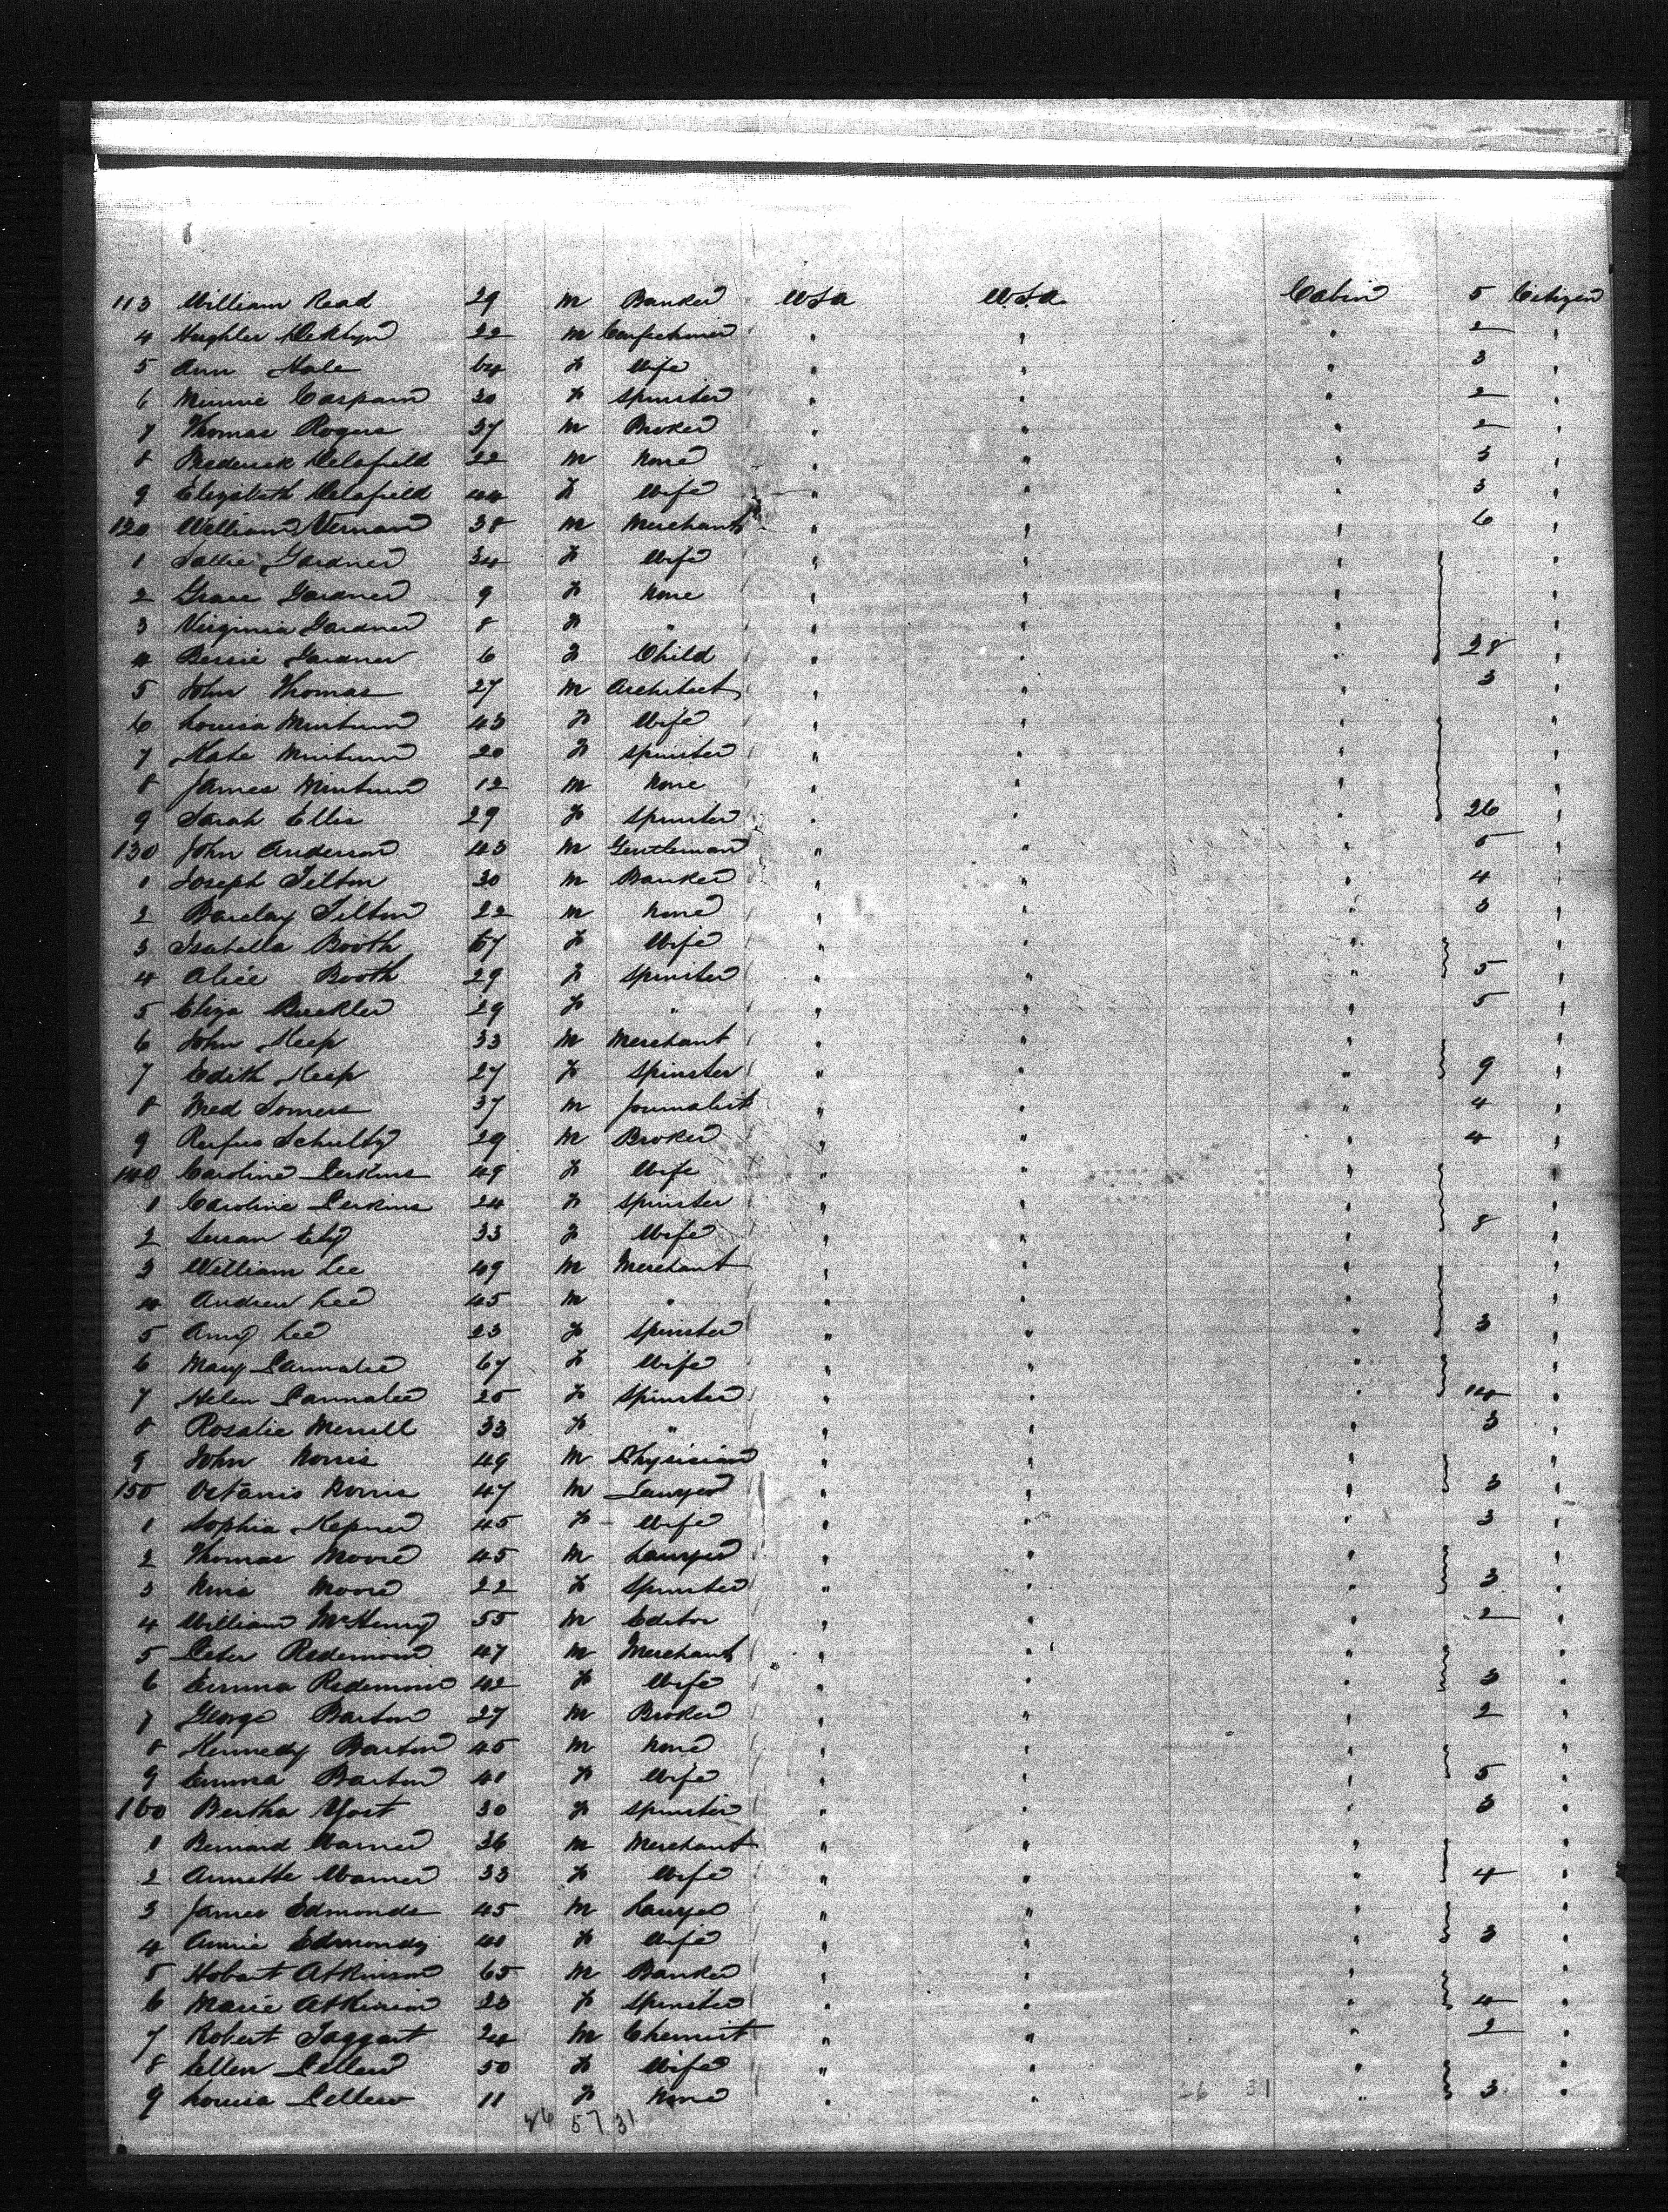 113 William Read 29 M Banker USA USA Cabin 5 Citizen
4 22 M Confectioner " " " 2 "
5 Ann Hale 64 F Wife " " " 3 "
6 Minnie Caspain 30 F Spinster " " " 2 "
7 Thomas Rogers 37 M Broker " " " 2 "
8 Frederick Delafield 22 M None " " " 3 "
9 Elizabeth Delafield 44 F Wife " " " 3 "
120 William Vernam 38 M Merchant " " " 6 "
1 Sallie Gardner 34 F Wife " " " "
2 Grace Gardner 9 F None " " " "
3 Virginia Gardner 8 F " " " " "
4 Bessie Gardner 6 F Child " " " 28 "
5 John Thomas 27 M Architect " " " 3 "
6 Louisa Minturn 43 F Wife " " " "
7 Kate Minturn 20 F Spinster " " " "
8 James Minturn 12 M None " " " "
9 Sarah Ellis 29 F Spinster " " " 26 "
130 John Anderson 43 M Gentleman " " " 5 "
1 Joseph Tilton 30 M Banker " " " 4 "
2 Barclay Tilton 22 M None " " " 3 "
3 Isabella Booth 57 F Wife " " " "
4 Alice Booth 29 F Spinster " " " 5 "
5 Eliza Buckler 29 F " " " " 5 "
6 John Keep 33 M Merchant " " " "
7 Edith Keep 27 F Spinster " " " 9 "
8 Fred Somers 37 M Journalist " " " 4 "
9 Rufus Schultz 29 M Broker " " " 4 "
140 Caroline Perkins 49 F Wife " " " "
1 Caroline Perkins 24 F Spinster " " " "
2 Susan Ely 33 F Wife " " " 8 "
3 William Lee 49 M Merchant " " " "
4 Andrew Lee 45 M " " " " "
5 Amy Lee 23 F Spinster " " " 3 "
6 Mary Pannalee 67 F Wife " " " "
7 Helen Pannalee 25 F Spinster " " " 14 "
8 Rosalie Merrill 33 F " " " " 3 "
9 John Norris 49 M Physician " " " "
150 Octavis Norris 47 M Lawyer " " " 3 "
1 Sophia Kepner 45 F Wife " " " 3 "
2 Thomas Moore 45 M Lawyer " " " "
3 Nina Moore 22 F Spinster " " " 3 "
4 William McHenry 55 M Editor " " " 2 "
5 Peter Redemond 47 M Merchant " " " "
6 Emma Redemond 42 F Wife " " " 3 "
7 George Barton 27 M Broker " " " 2 "
8 Kennedy Barton 45 M None " " " "
9 Emma Barton 41 F Wife " " " 5 "
160 Bertha Yost 30 F Spinster " " " 3 "
1 Bernard Warner 36 M Merchant " " " "
2 Annette Warner 33 F Wife " " " 4 "
3 James Edmonds 45 M Lawyer " " " "
4 Annie Edmonds 40 F Wife " " " 3 "
5 Hobart Atkinson 65 M Banker " " " "
6 Marie Atkinson 23 F Spinster " " " 4 "
7 Robert Taggart 24 M Chemist " " " 2 "
8 Ellen Pellew 50 F Wife " " " "
9 Louisa Pellew 11 F None " " 26 31 " 3 "
26 57 31